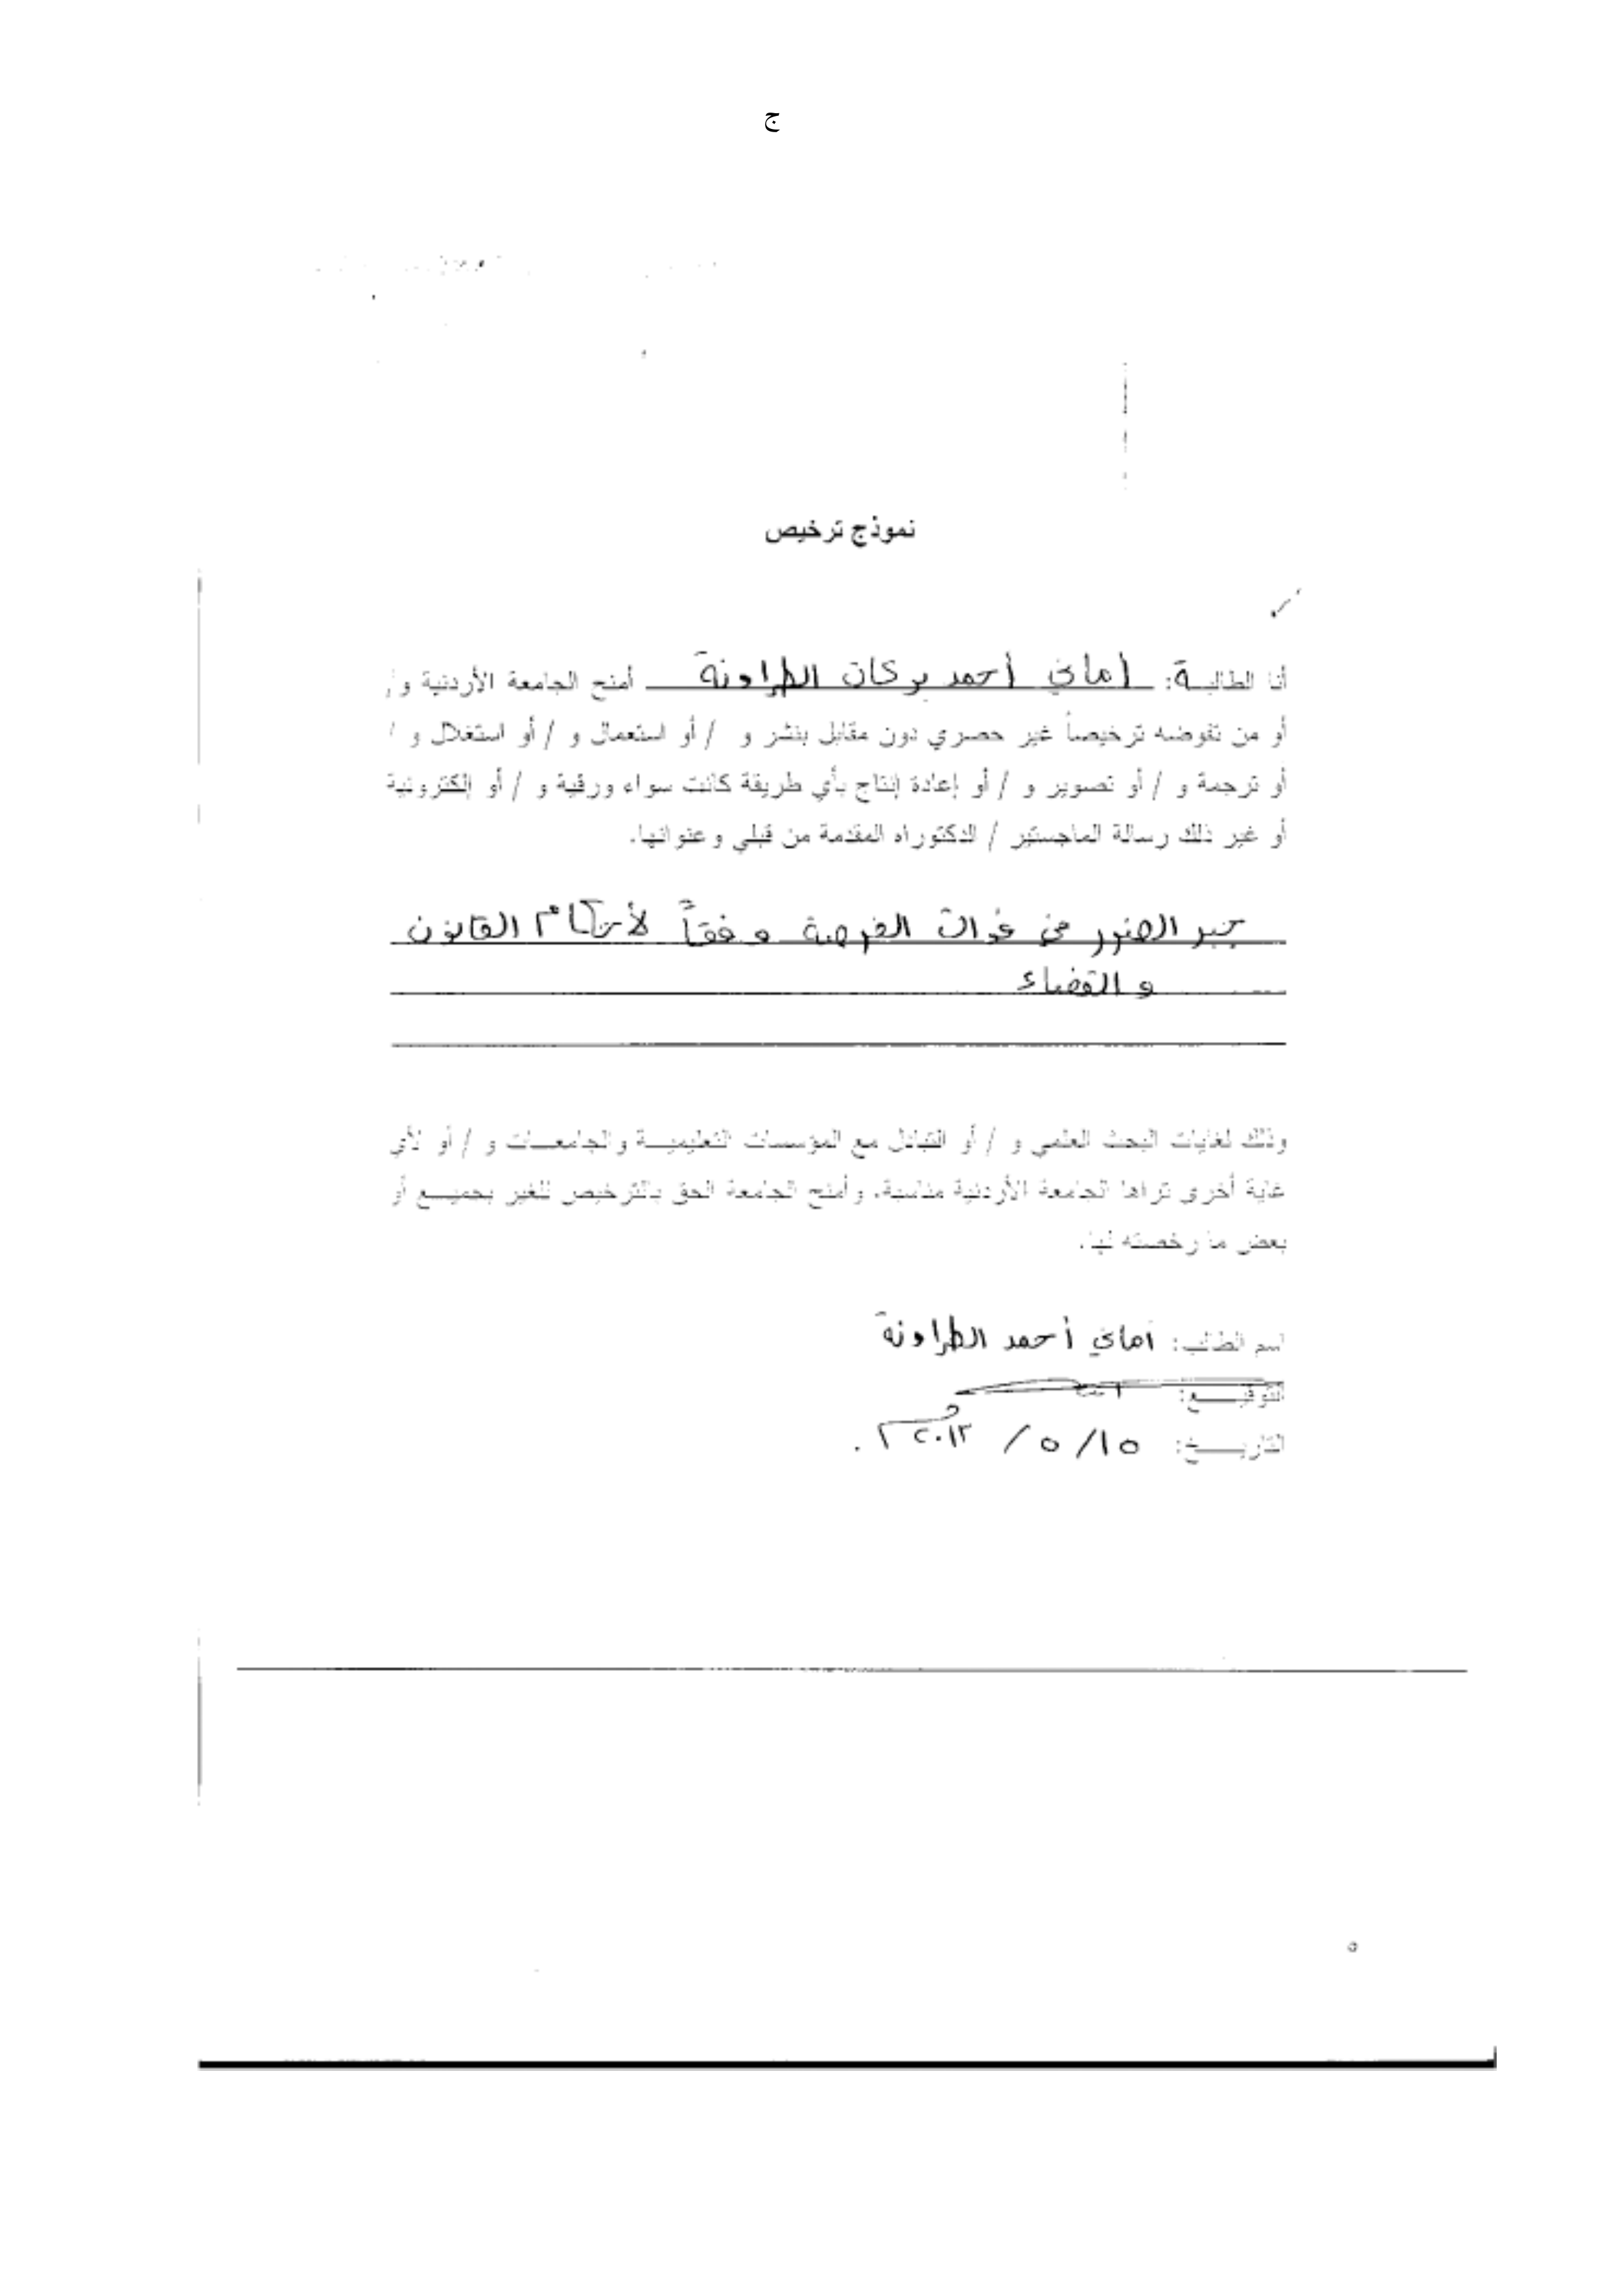 ج
نموذج ترخيص
أنا الطالبـة: أماني أحمد بركات الطراونة أمنح الجامعة الأردنية و/
أو من تفوضه ترخيصاً غير حصري دون مقابل بنشر و / أو استعمال و / أو استغلال و /
أو ترجمة و / أو تصوير و / أو إعادة إنتاج بأي طريقة كانت سواء ورقية و / أو إلكترونية
أو غير ذلك رسالة الماجستير / الدكتوراه المقدمة من قبلي وعنوانها.
جبر الضرر في فوات الفرصة وفقاً لأحكام القانون
والقضاء
وذلك لغايات البحث العلمي و / أو التبادل مع المؤسسات التعليميـة والجامعـات و / أو لأي
غاية أخرى تراها الجامعة الأردنية مناسبة، وأمنح الجامعة الحق بالترخيص للغير بجميـع أو
بعض ما رخصته لها.
اسم الطالب: أماني أحمد الطراونة
التوقيـع:
التاريـخ: ١٥/ ٥ / ٢٠١٣م.